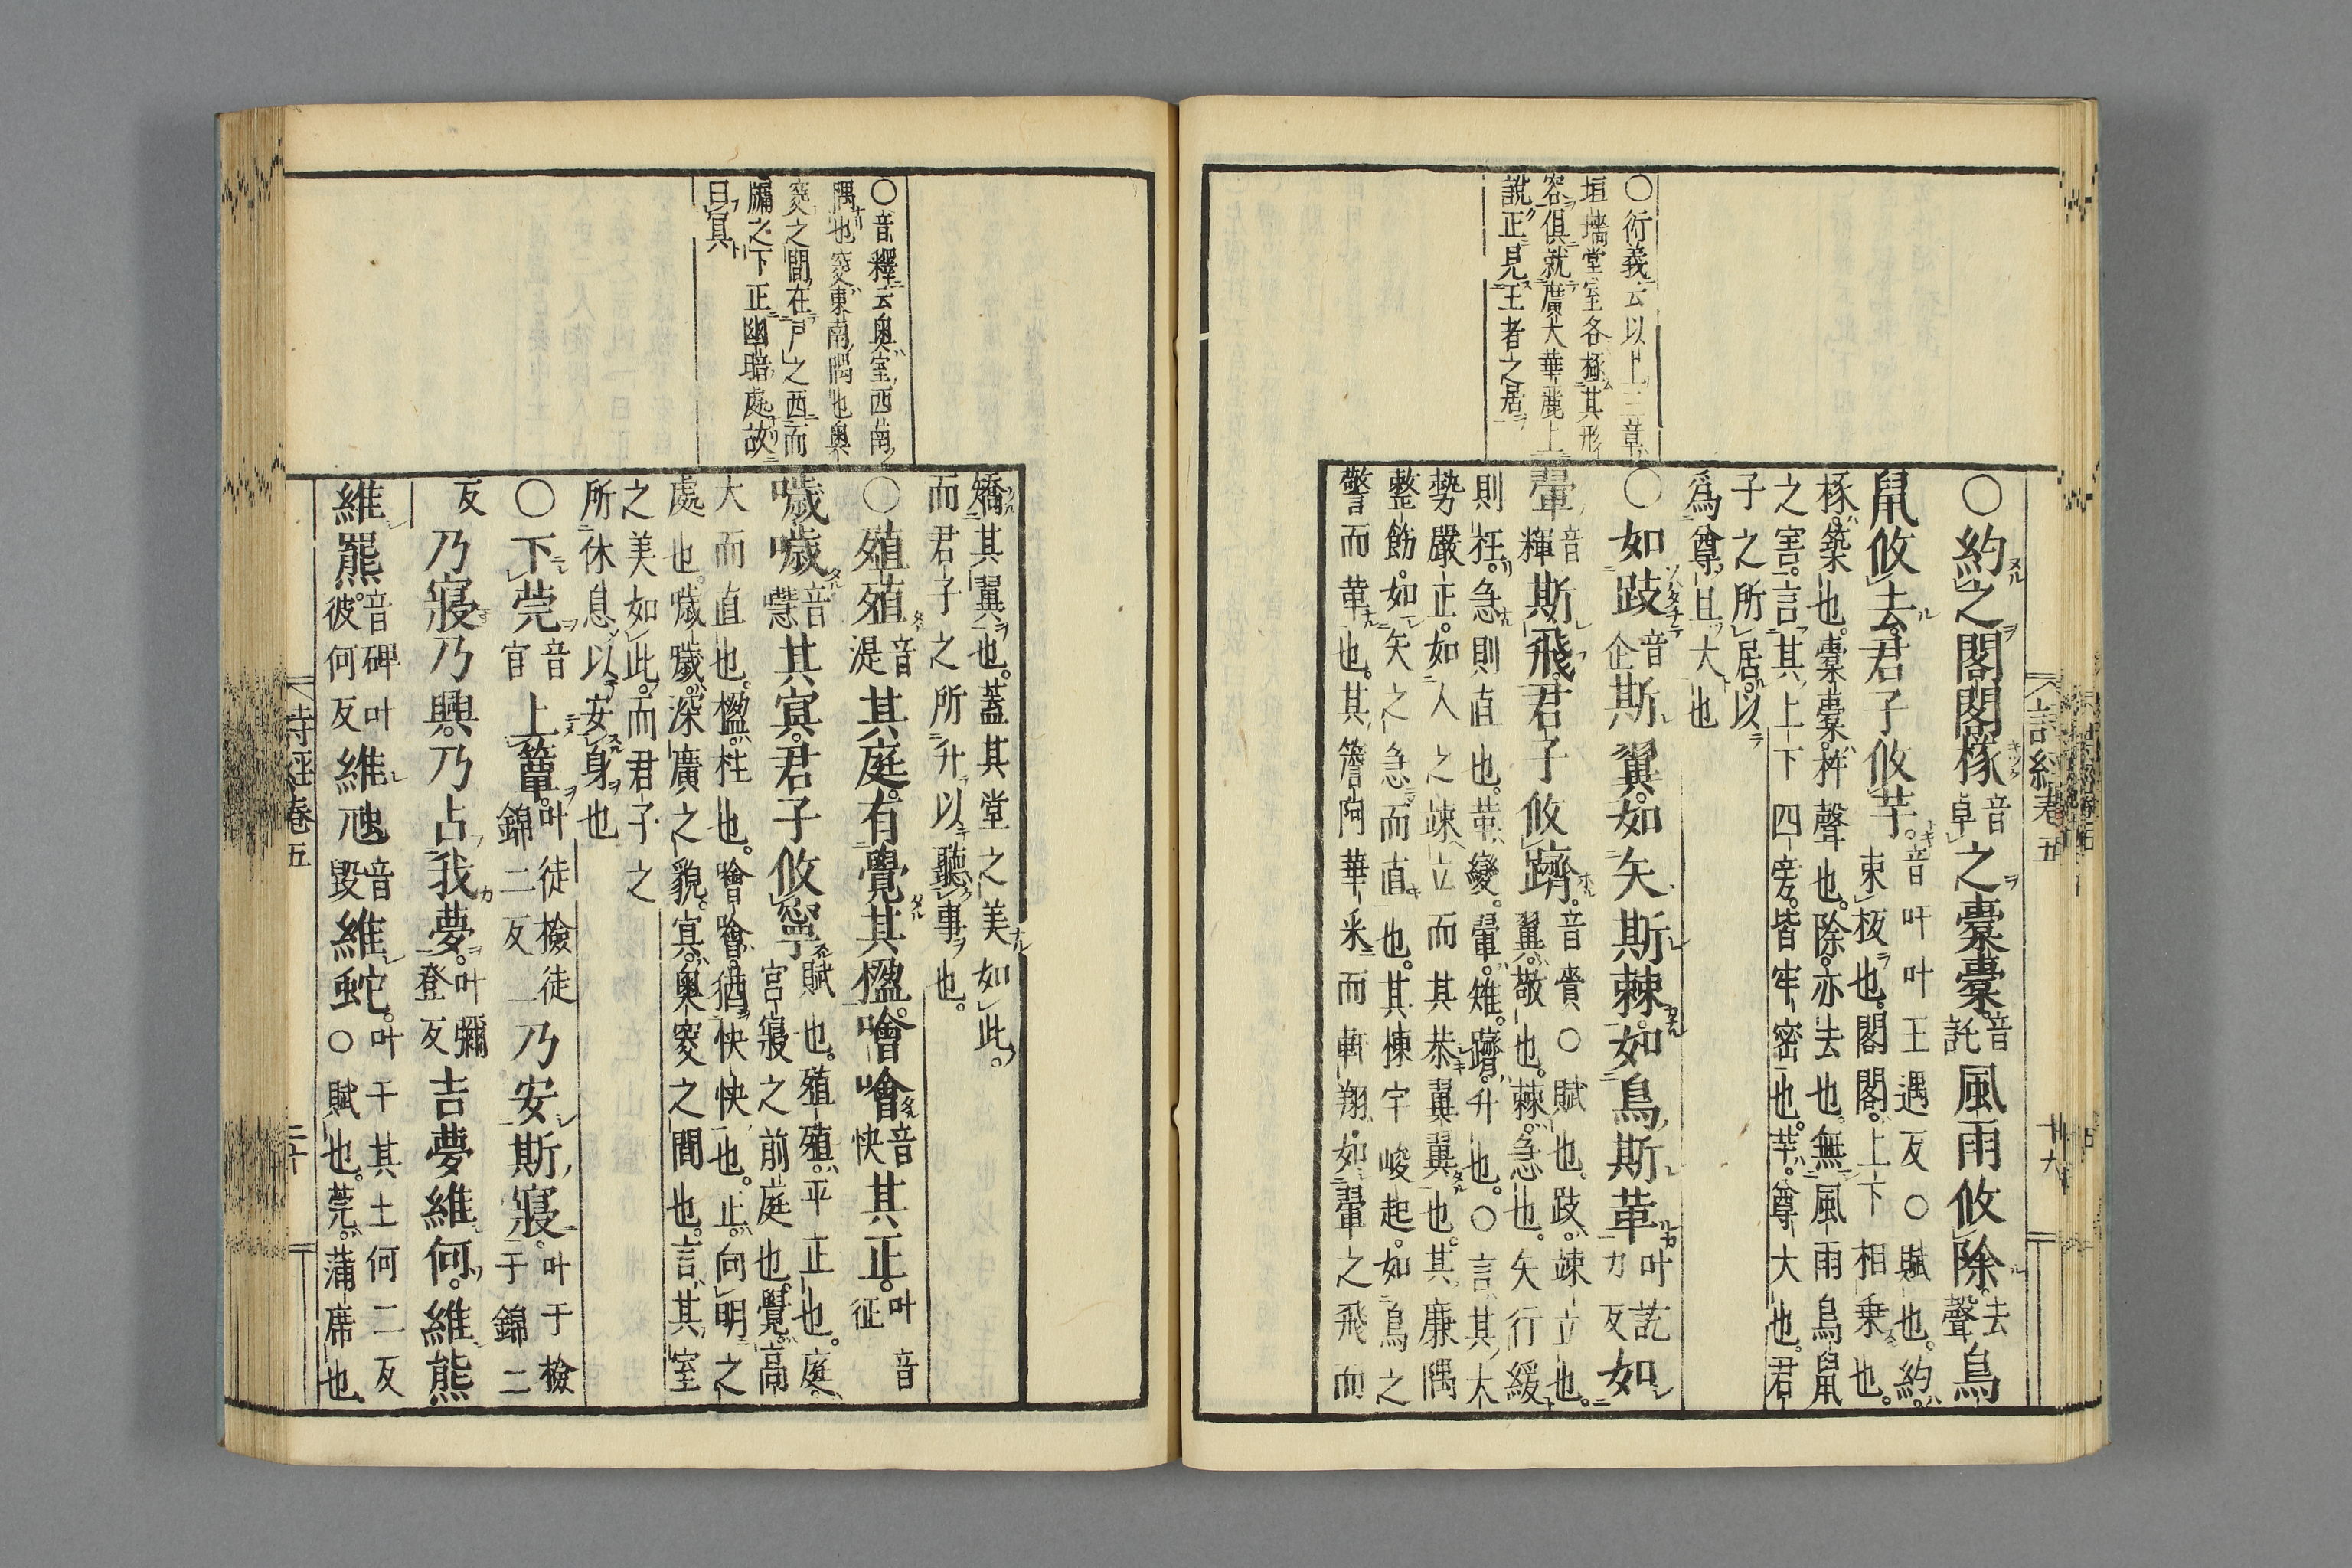 詩經卷五
十九
○衍義云以上三章
垣墻堂室各極其形
容俱就廣大華麗上
說正見王者之居
○約之閣閣椓音卓之橐橐音託風雨攸除去聲鳥
鼠攸去君子攸芋音吁叶王遇反○賦也約
束板也閣閣上下相乗也
椓築也橐橐杵聲也除亦去也無風雨鳥鼠
之害言其上下四旁皆牢密也芋尊大也君
子之所居以
爲尊且大也
○如跂音企斯翼如矢斯棘如鳥斯革叶訖力反如
翬音輝斯飛君子攸躋音賫○賦也跂竦立也
翼敬也棘急也矢行緩
則枉急則直也革變翬雉躋升也○言其大
勢嚴正如人之竦立而其恭翼翼也其廉隅
整飭如矢之急而直也其棟宇峻起如鳥之
警而革也其簷阿華采而軒翔如翬之飛而
○音釋云奥室西南
隅也窔東南隅也奥
窔之間在戸之西而
牖之下正幽暗處故
曰冥
矯其翼也蓋其堂之美如此
而君子之所升以聽事也
○殖殖音湜其庭有覺其楹噲噲音快其正叶音征
噦噦音噦其冥君子攸寧賦也殖殖平正也庭
宮寢之前庭也覺高
大而直也楹柱也噲噲猶快快也正向明之
處也噦噦深廣之貌冥奥窔之間也言其室
之美如此而君子之
所休息以安身也
○下莞音官上簟叶徒檢徒錦二反乃安斯寢叶于檢于錦二
反乃寢乃興乃占我夢叶彌登反吉夢維何維熊
維羆音碑叶彼何反維虺音毀維蛇叶于其土何二反○賦也莞蒲席也
詩經卷五
二十